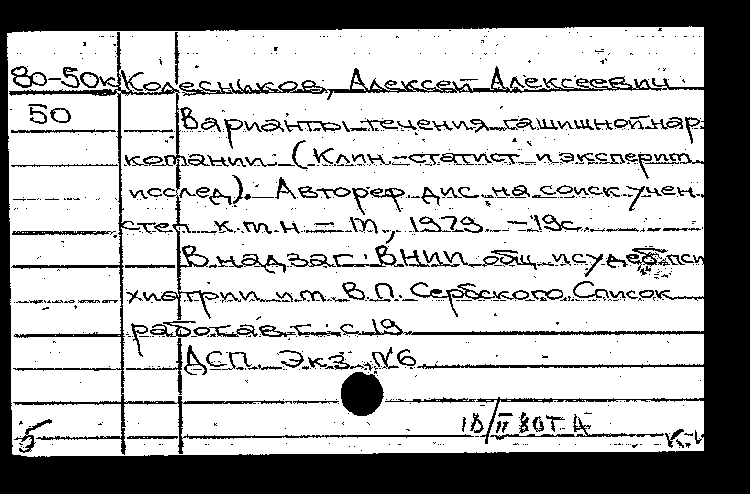 80-50к Колесников, Алексей Алексеевич
50 Варианты течения гашишной нар-
комании. (Клин.-статист и эксперим.
исслед). Автореф дис. на соиск. учен.
степ к.м.н - М, 1979. - 19с.
В надзаг: ВНИИ общ и судеб пси
хиатрии им. В.П. Сербского. Список
работ авт.: с 19
ДСП. Экз. №6
18/II 80г. А
5